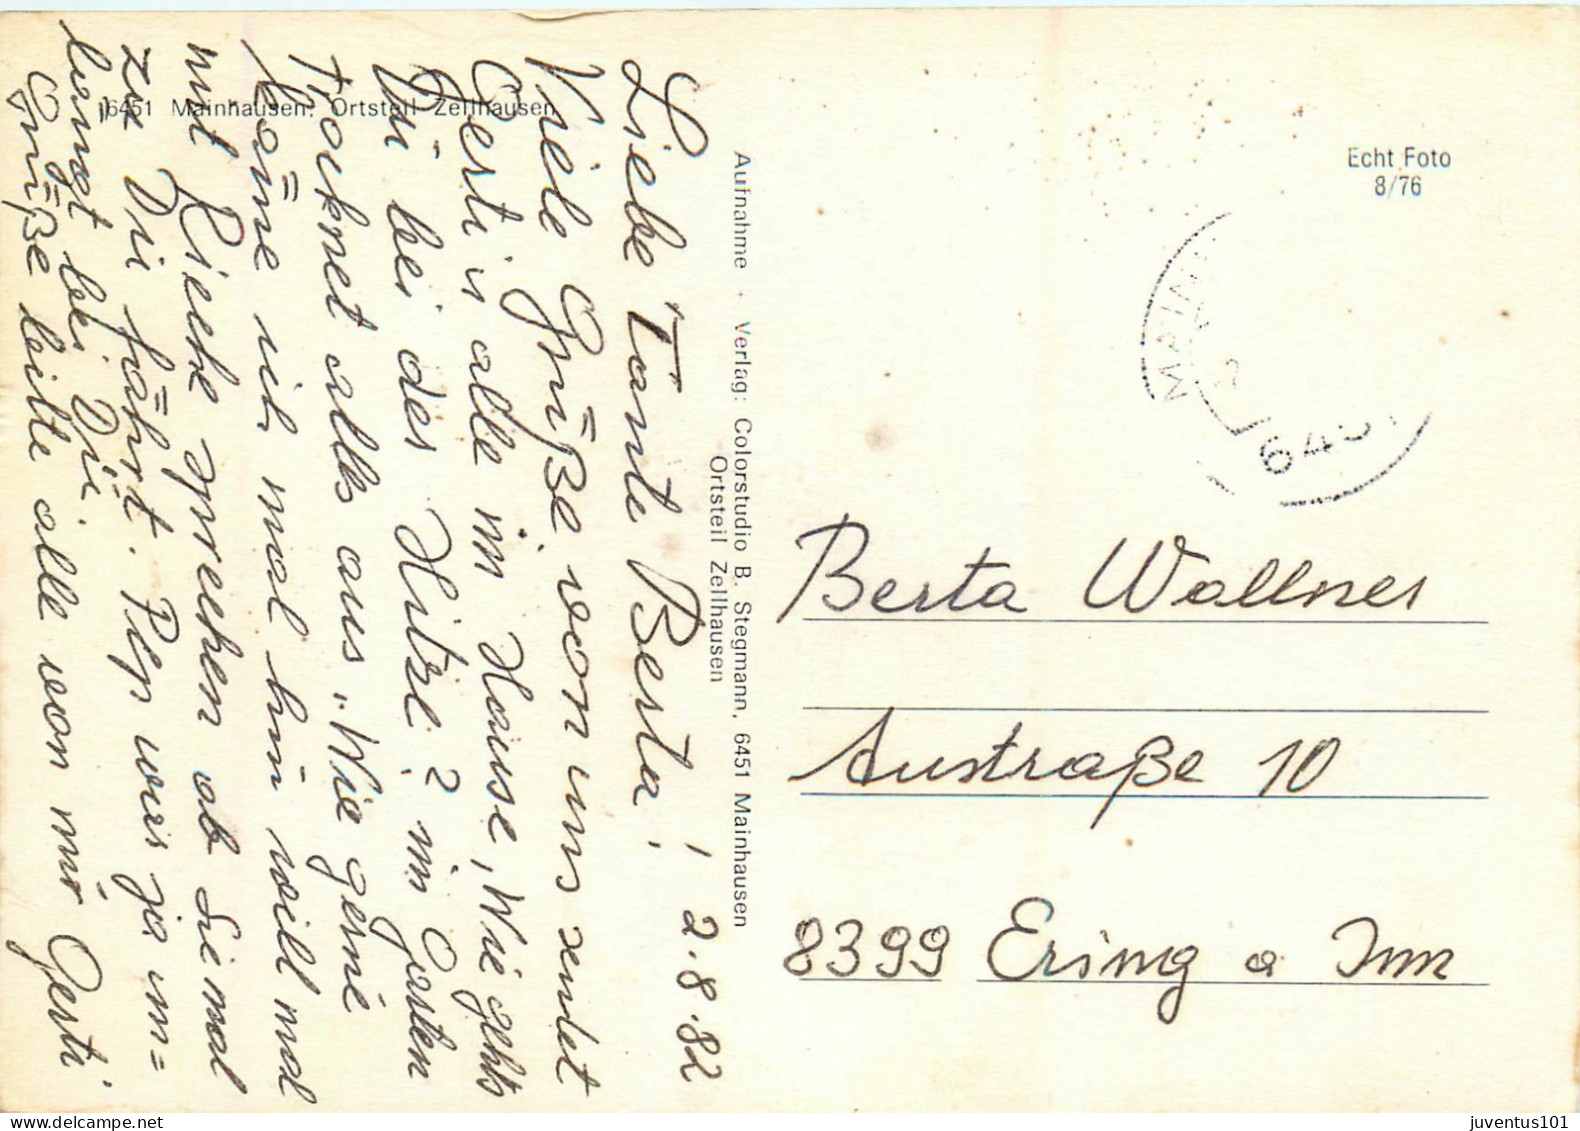 6451 Mainhausen, Ortsteil Zellhausen
2.8.82
Liebe Tante Berta!
Viele Grüße von uns sendet
Gerti in alle im Hause, Wie gehts
Dir bei der Hitze? im Garten
trocknet alles aus. Wie gerne
käme ich mal hin will mal
mit Rieck sprechen ob Sie mal
zu Dir fährt. Plp wir ja im=
bei Dir.
Grüße bitte alle von mir Gerti
Aufnahme · Verlag: Colorstudio B. Stegmann, 6451 Mainhausen
Ortsteil Zellhausen
Echt Foto
8/76
Berta Wallner
Austraße 10
8399 Ering a Inn
juventus101